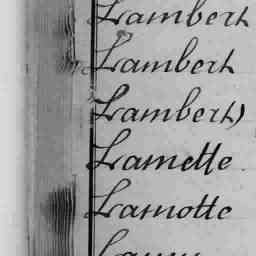 Lambert
Lambert
Lambert)
Lamette
Lamotte